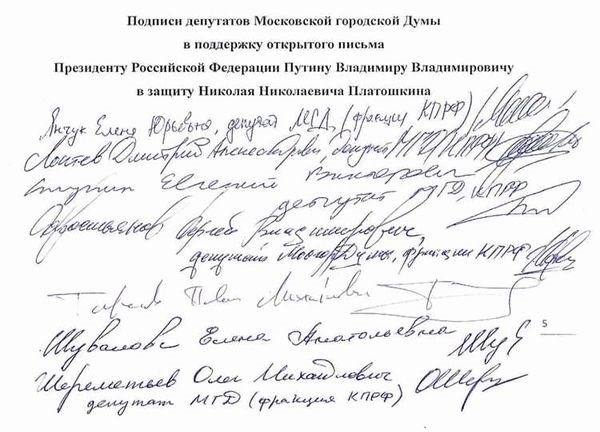 Подписи депутатов Московской городской Думы
в поддержку открытого письма
Президенту Российской Федерации Путину Владимиру Владимировичу
в защиту Николая Николаевича Платошкина
Янчук Елена Юрьевна, депутат МГД, (фракции КПРФ)
Локтев Дмитрий Александрович, депутат МГД КПРФ
Ступин Евгений Викторович
депутат МГД, КПРФ
Савостьянов Сергей Владимирович,
депутат МосгорДумы, фракции КПРФ
Тарасов Павел Михайлович
Шувалова Елена Анатольевна
5
Шереметьев Олег Михайлович
депутат МГД (фракция КПРФ)